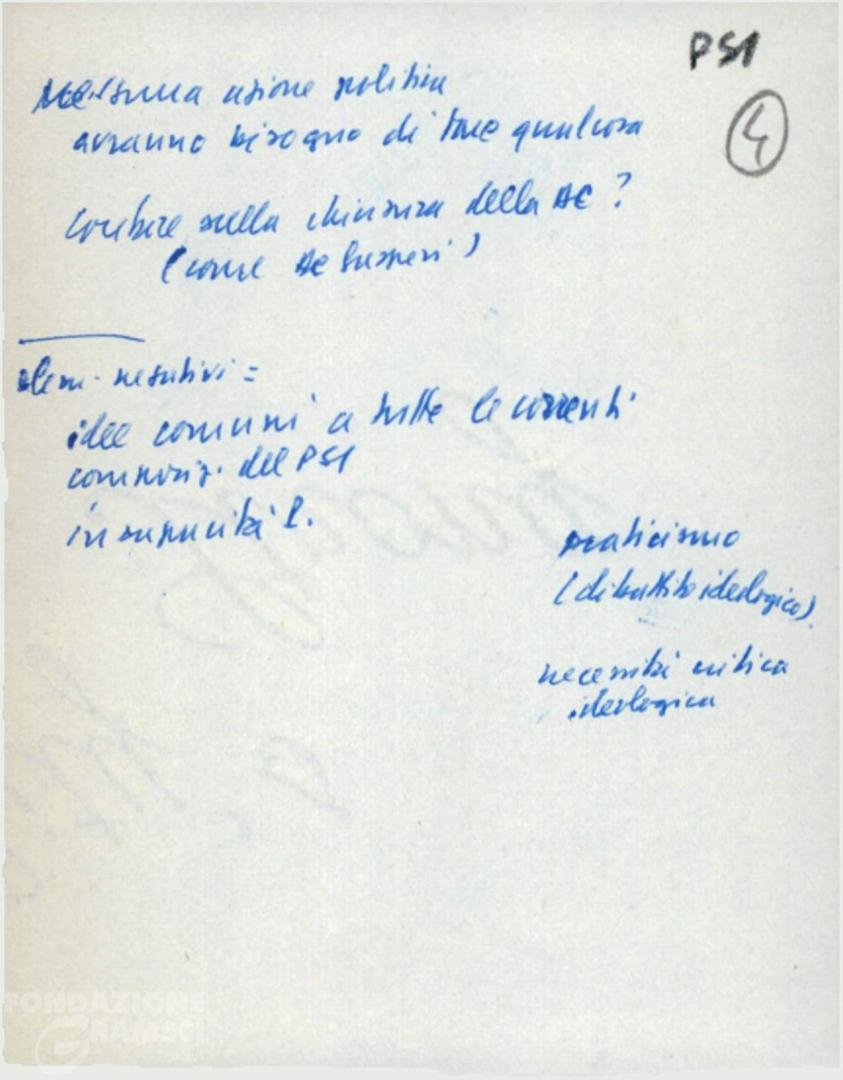 PSI
4
Nessuna azione politica
avranno bisogno di fare qualcosa
Contare sulla chiusura della DC?
(come De
elem. negativi =
idee comuni a tutte le correnti
composiz. del PSI
immunità P.
praticismo
(dibattito ideologico).
necessità critica
ideologica
FONDAZIONE
GRAMSCI